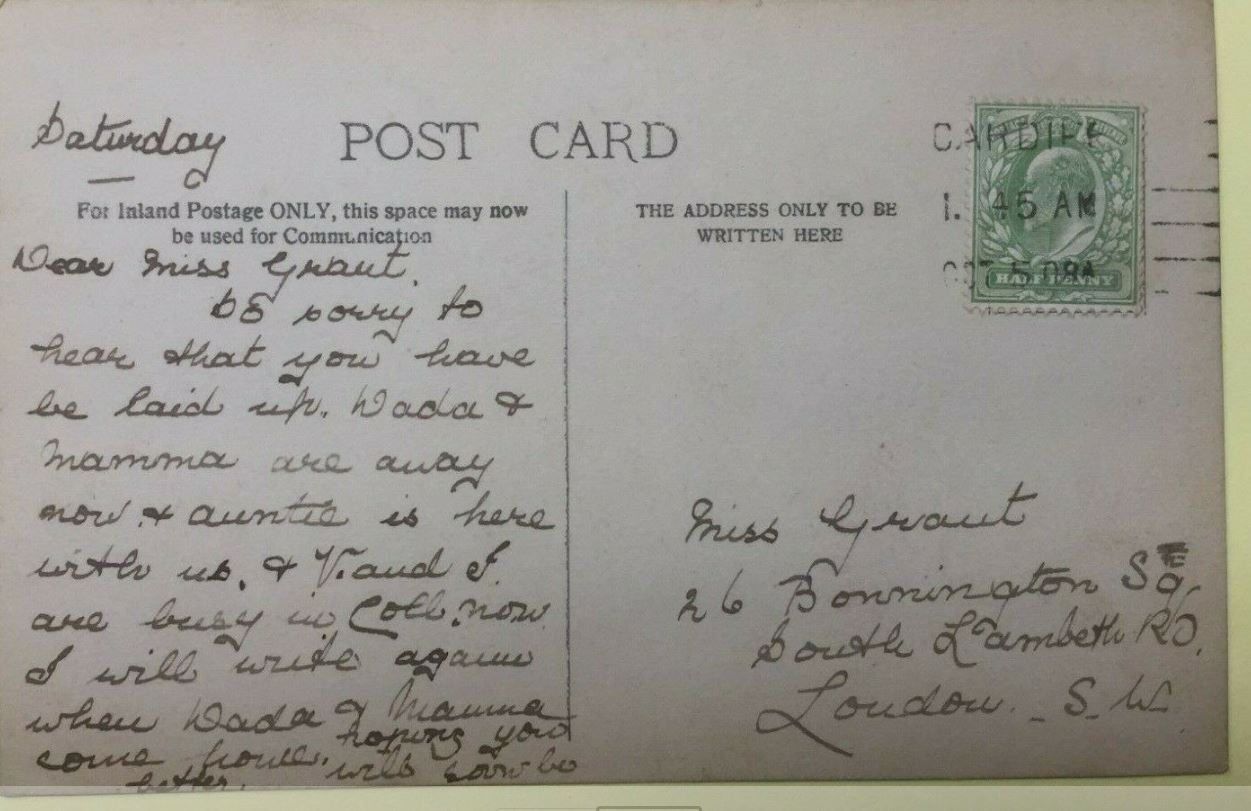 Saturday
POST CARD
For Inland Postage ONLY, this space may now
be used for Communication
THE ADDRESS ONLY TO BE
WRITTEN HERE
Dear Miss Grant.
So sorry to
hear that you have
be laid up. Dada &
Mamma are away
now & auntie is here
with us. & V. and I.
are busy in Coll. now.
I will write again
when Dada & Mamma
come home. hoping you
will soon be
better.
CARDIFF
1. 45 AM
OCT 5 08
HALF PENNY
Miss Grant
26 Bonnington Sq
South Lambeth Rd.
London. S. W